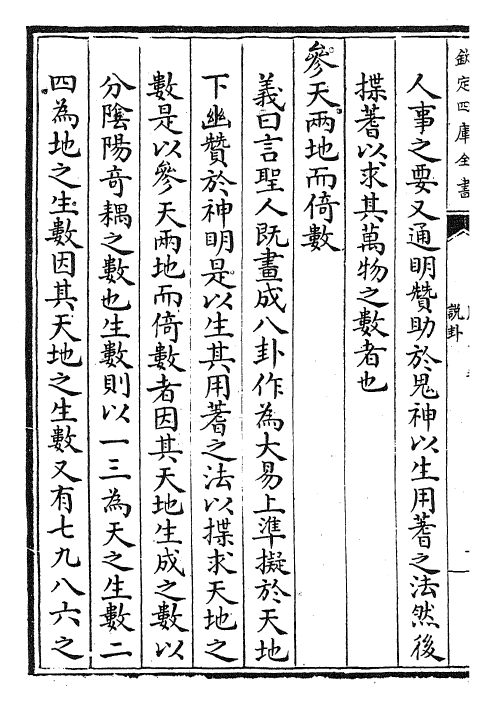 欽定四庫全書
說卦
人事之要又通明贊助於鬼神以生用蓍之法然後
揲蓍以求其萬物之數者也
參天兩地而倚數
義曰言聖人既畫成八卦作為大易上準擬於天地
下幽贊於神明是以生其用蓍之法以揲求天地之
數是以參天兩地而倚數者因其天地生成之數以
分陰陽奇耦之數也生數則以一三為天之生數二
四為地之生數因其天地之生數又有七九八六之